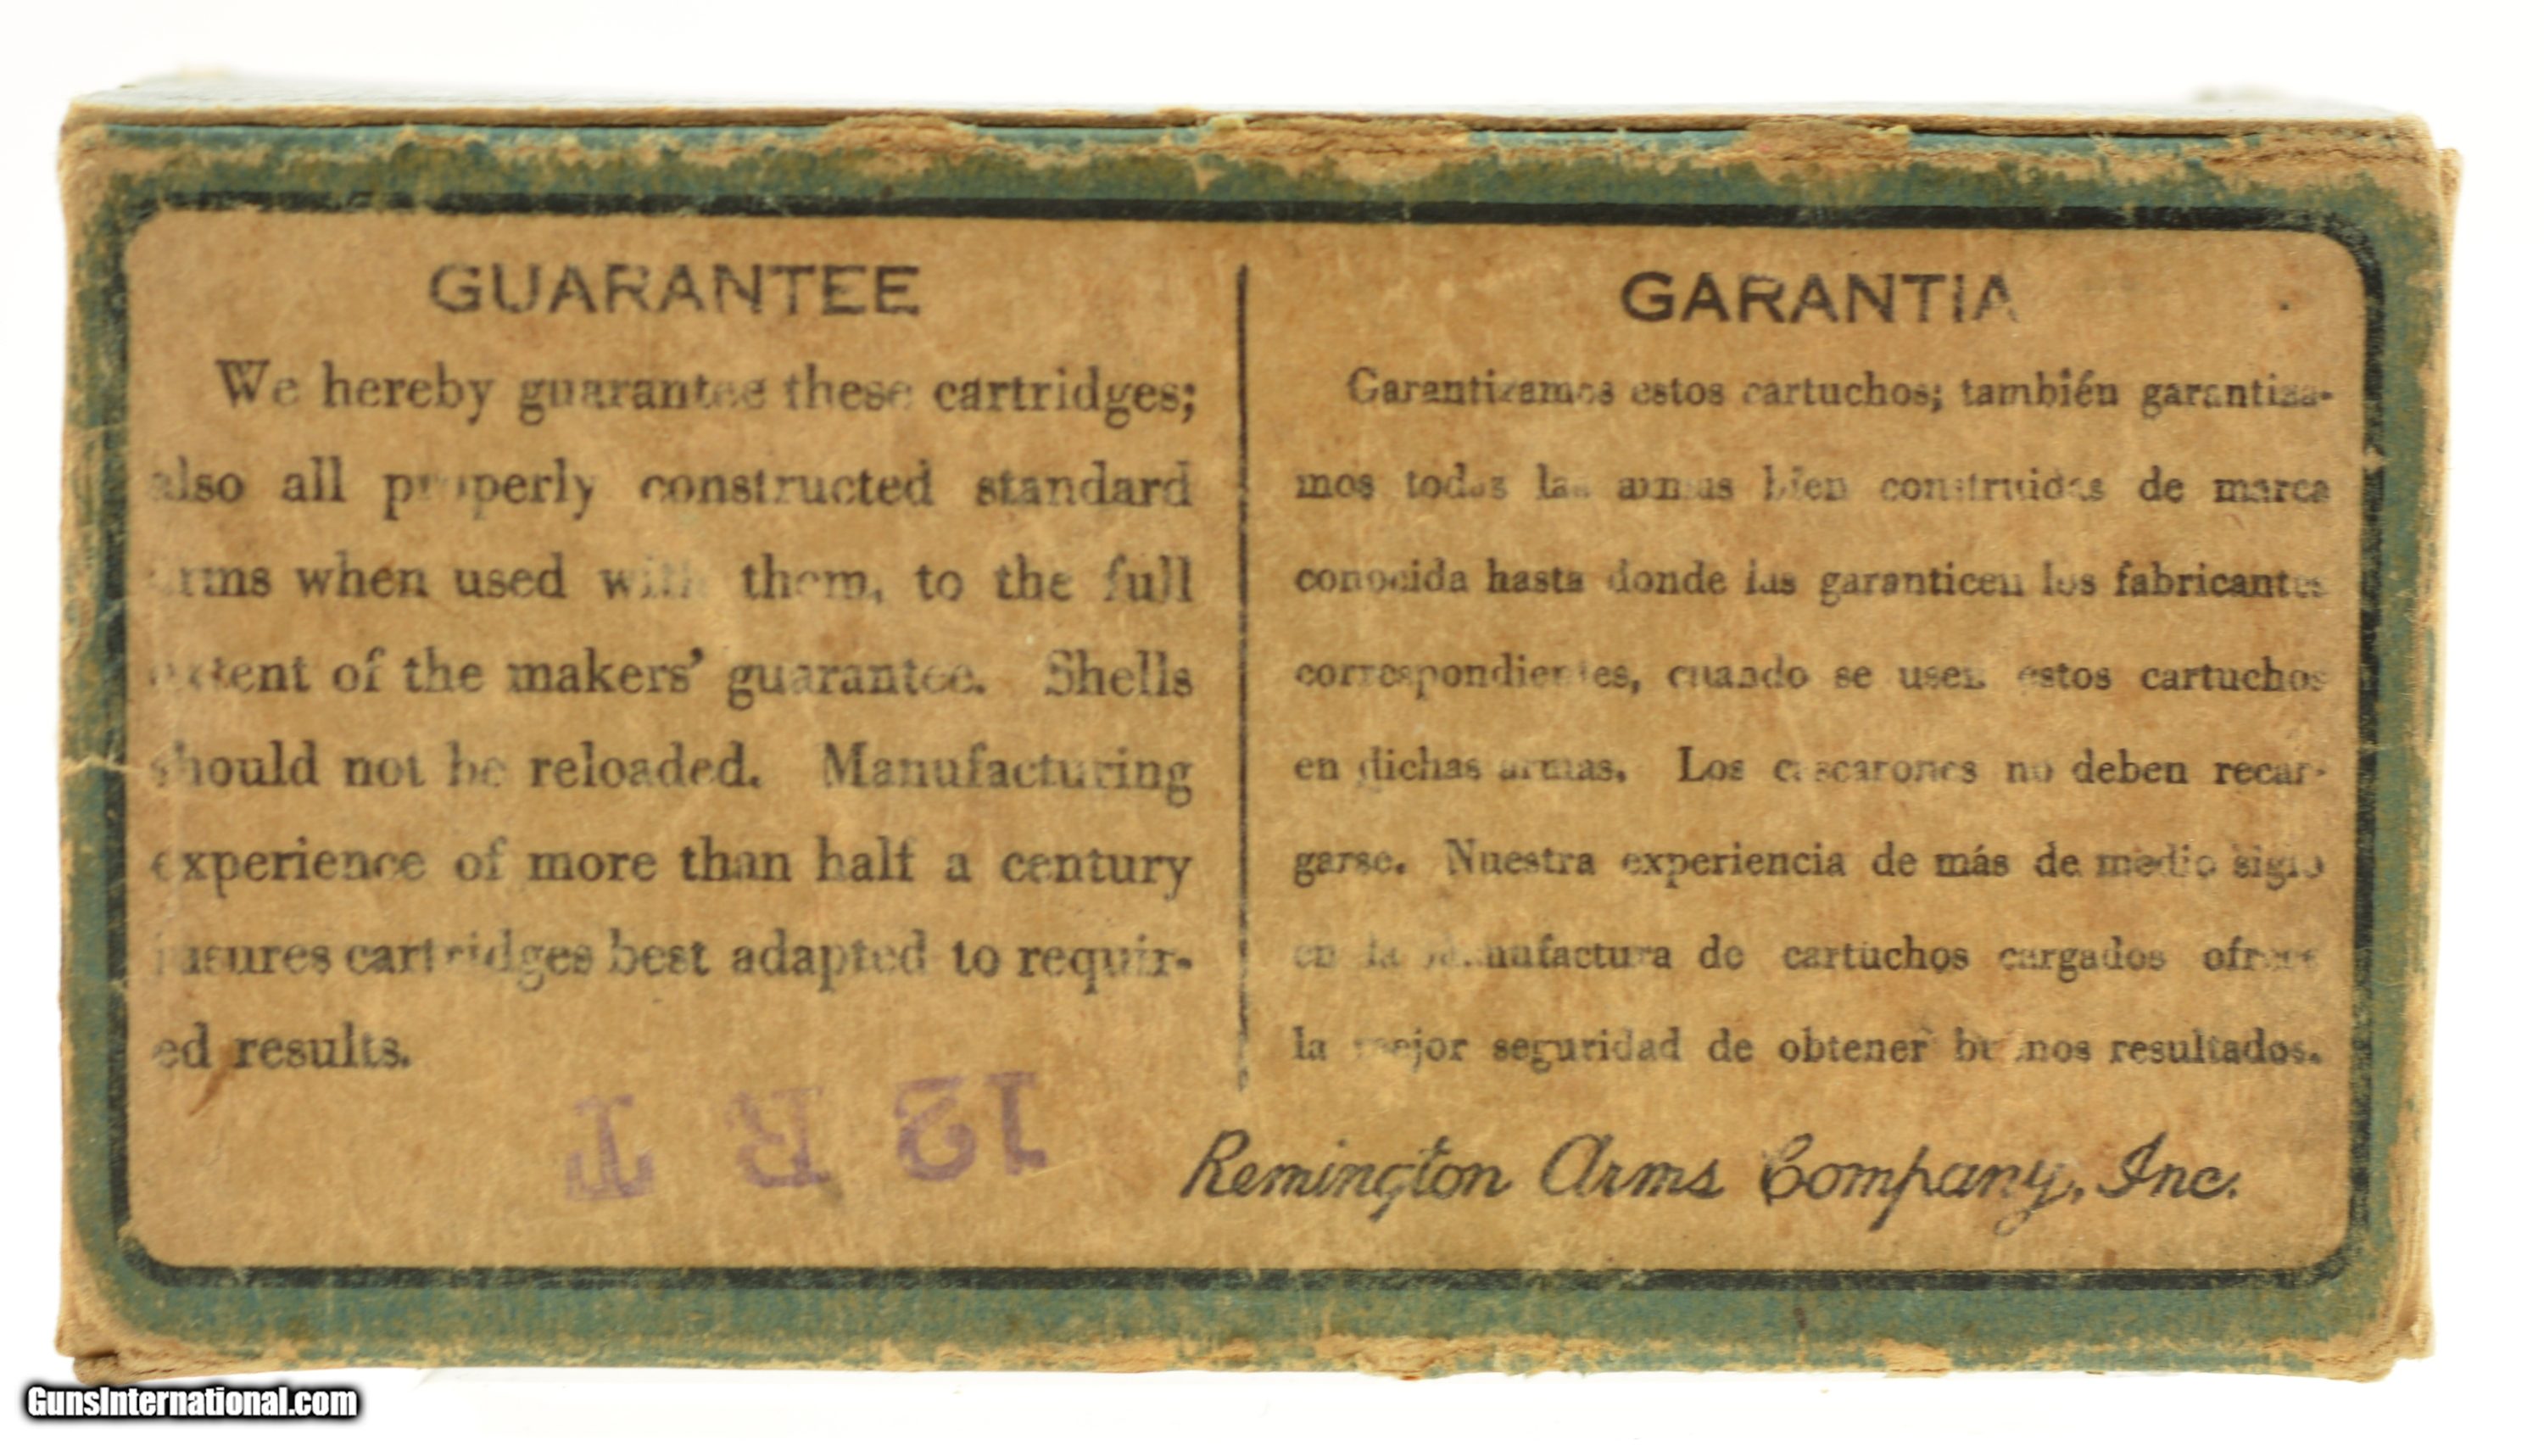 GUARANTEE
We hereby guarantee these cartridges;
also all properly constructed standard
arms when used with them, to the full
extent of the makers' guarantee. Shells
should not be reloaded. Manufacturing
experience of more than half a century
insures cartridges best adapted to requir-
ed results.
GARANTIA
Garantizamos estos cartuchos; también garantiza-
mos todas las armas bien construidas de marca
conocida hasta donde las garanticen los fabricantes
correspondientes, cuando se usen estos cartuchos
en dichas armas. Los cascarones no deben recar-
garse. Nuestra experiencia de más de medio siglo
en la manufactura de cartuchos cargados ofrece
la mejor seguridad de obtener buenos resultados.
Remington Arms Company, Inc.
12 R T
GunsInternational.com